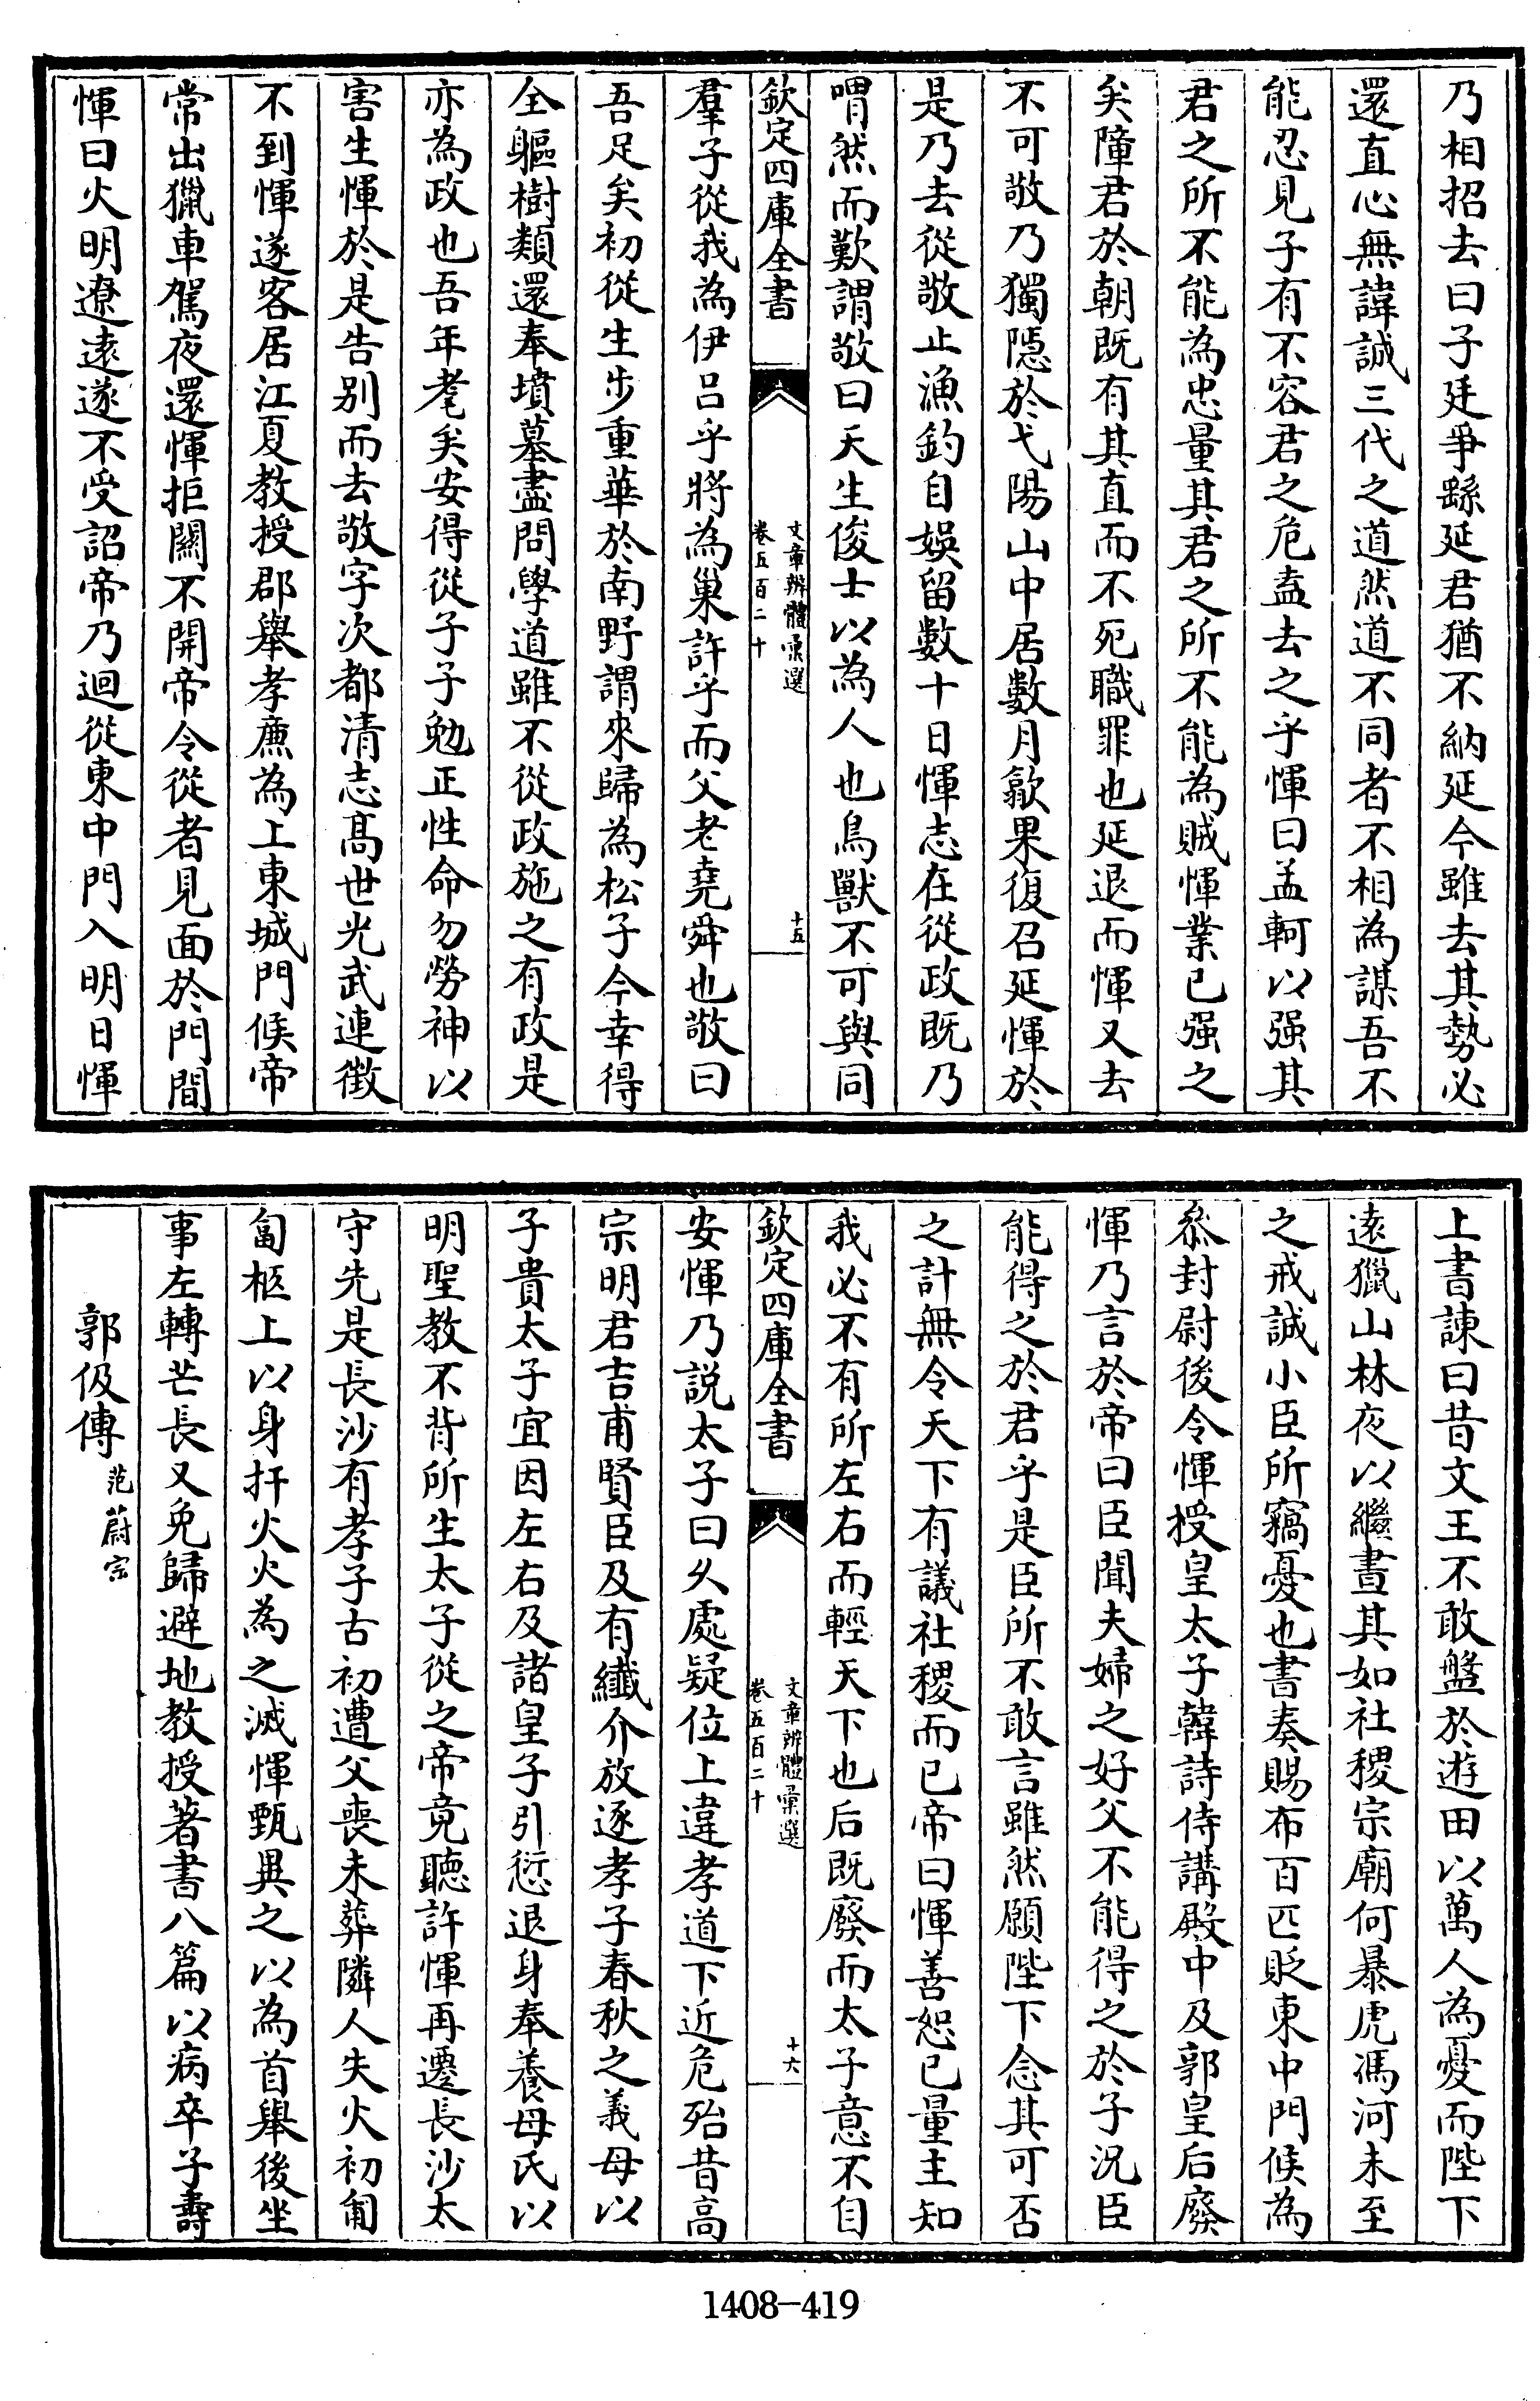 乃相招去曰子廷爭繇延君猶不納延今雖去其勢必
還直心無諱誠三代之道然道不同者不相為謀吾不
能忍見子有不容君之危盍去之乎惲曰孟軻以强其
君之所不能為忠量其君之所不能為賊惲業已强之
矣障君於朝既有其直而不死職罪也延退而惲又去
不可敬乃獨隱於弋陽山中居數月歙果復召延惲於
是乃去從敬止漁釣自娯留數十日惲志在從政既乃
喟然而歎謂敬曰天生俊士以為人也鳥獸不可與同
欽定四庫全書
文章辨體彚選
卷五百二十
十五
羣子從我為伊吕乎將為巢許乎而父老堯舜也敬曰
吾足矣初從生步重華於南野謂來歸為松子今幸得
全軀樹類還奉墳墓盡問學道雖不從政施之有政是
亦為政也吾年耄矣安得從子子勉正性命勿勞神以
害生惲於是告别而去敬字次都清志髙世光武連徵
不到惲遂客居江夏教授郡舉孝亷為上東城門候帝
常出獵車駕夜還惲拒關不開帝令從者見面於門間
惲曰火明遼遠遂不受詔帝乃迴從東中門入明日惲
上書諫曰昔文王不敢盤於遊田以萬人為憂而陛下
遠獵山林夜以繼晝其如社稷宗廟何暴虎馮河未至
之戒誠小臣所竊憂也書奏賜布百匹貶東中門候為
叅封尉後令惲授皇太子韓詩侍講殿中及郭皇后廢
惲乃言於帝曰臣聞夫婦之好父不能得之於子況臣
能得之於君乎是臣所不敢言雖然願陛下念其可否
之計無令天下有議社稷而已帝曰惲善恕已量主知
我必不有所左右而輕天下也后既廢而太子意不自
欽定四庫全書
文章辨體彚選
卷五百二十
十六
安惲乃説太子曰久處疑位上違孝道下近危殆昔高
宗明君吉甫賢臣及有纎介放逐孝子春秋之義母以
子貴太子宜因左右及諸皇子引愆退身奉養母氏以
明聖教不背所生太子從之帝竟聽許惲再遷長沙太
守先是長沙有孝子古初遭父喪未葬隣人失火初匍
匐柩上以身扞火火為之滅惲甄異之以為首舉後坐
事左轉芒長又免歸避地教授著書八篇以病卒子壽
郭伋傳范蔚宗
1408-419